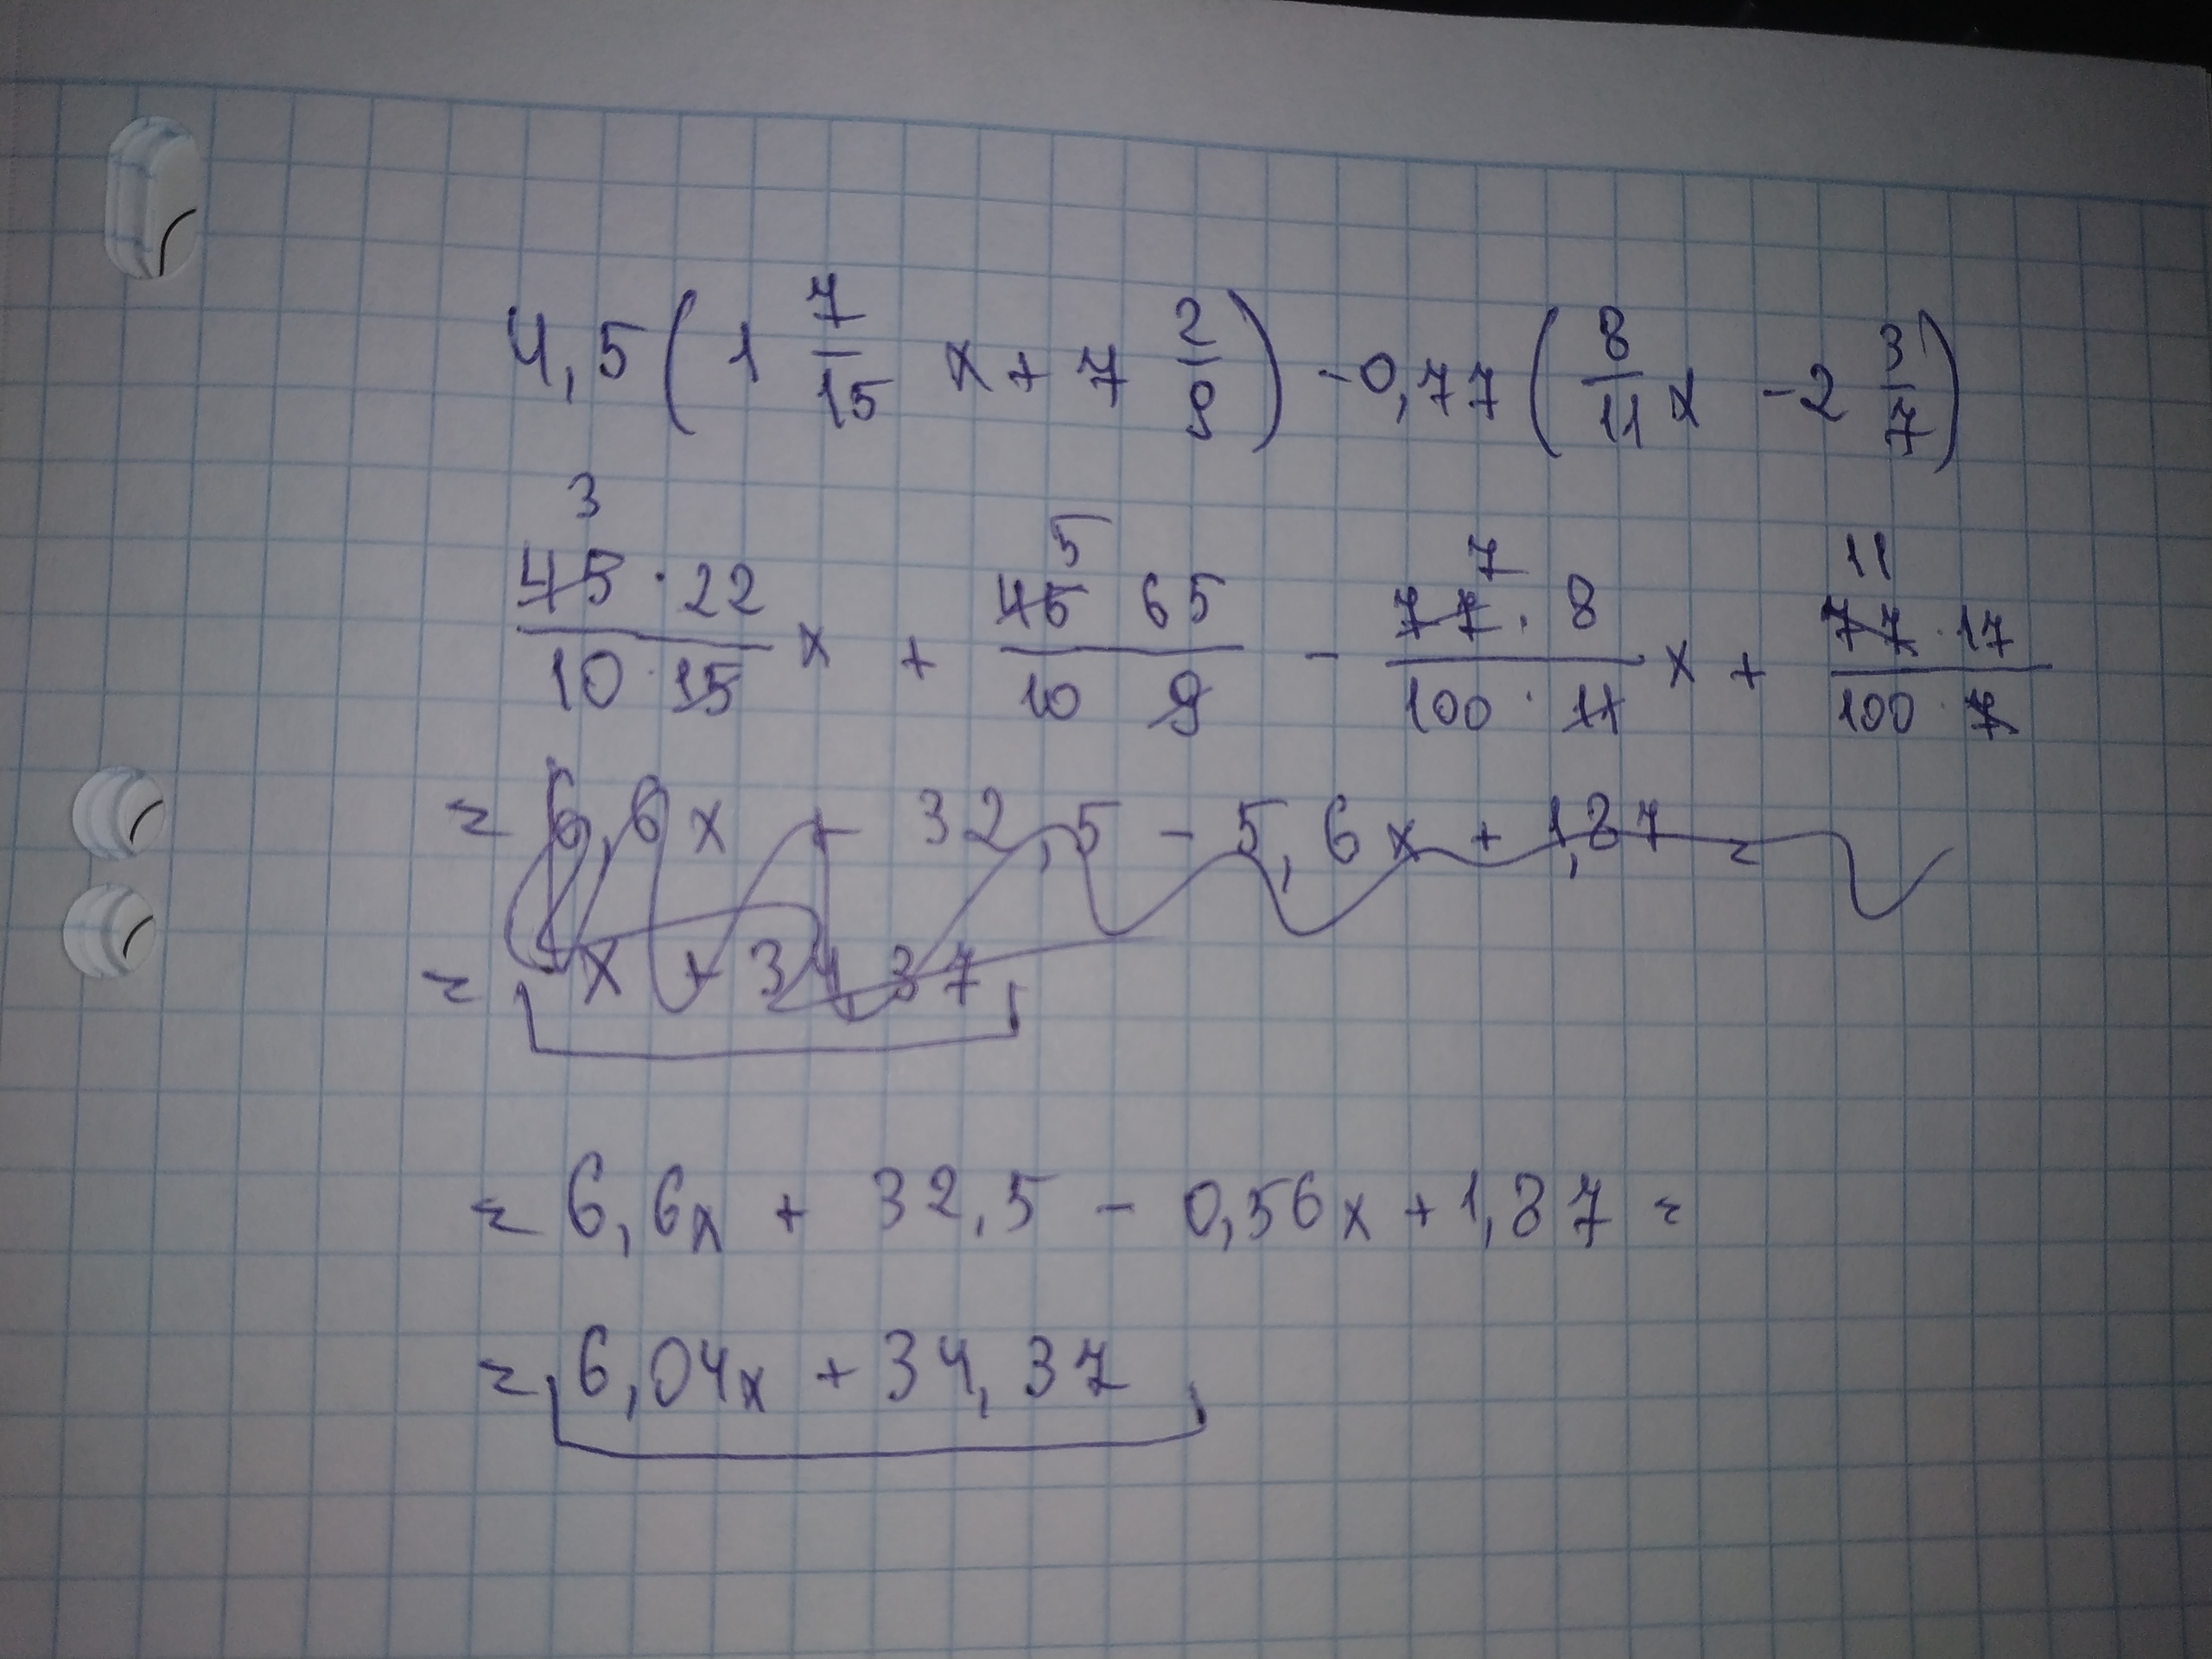 4,5(1 7/15 x + 7 2/9) - 0,77(8/11 x - 2 3/7)
3 5 7 11
45 · 22 / 10 · 15 x + 45 65 / 10 9 - 77 · 8 / 100 · 11 x + 77 · 17 / 100 · 7
= 6,6x + 32,5 - 5,6x + 1,87 =
= x + 34,37
= 6,6x + 32,5 - 0,56x + 1,87 =
= 6,04x + 34,37